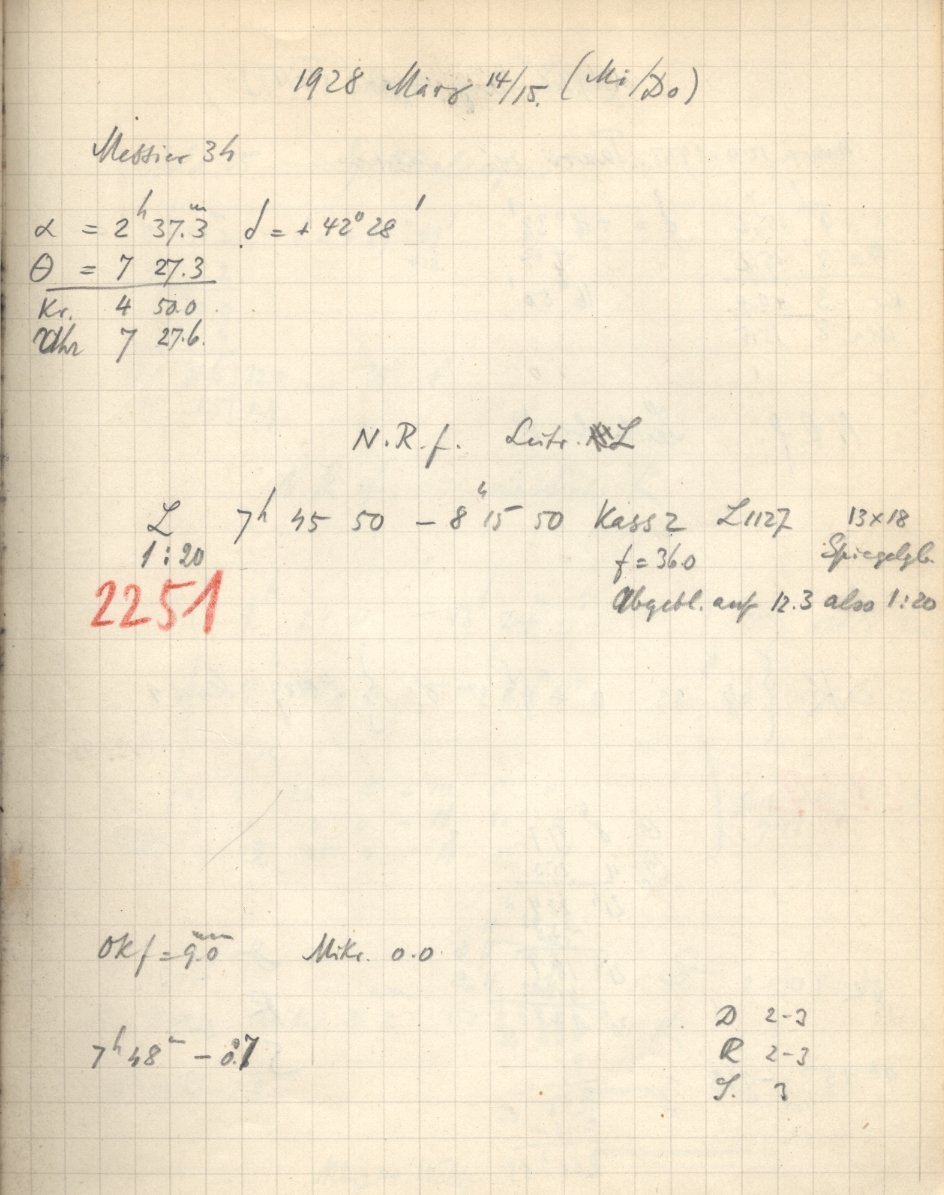 1928 März 14/15. (Mi/Do)
Messier 34
α = 2h 37.3m δ = + 42° 28'
θ = 7 27.3
Kr. 4 50.0
Uhr 7 27.6
N.R.f. Leitr. L
L 7h 45 50 – 8h 15 50 Kass 2 L1127 13×18
1:20 f = 360 Spiegelgb.
2251 Abgebl. auf 12.3 also 1:20
OKf = 9.0mm Mikr. 0.0
7h 48m – 0.7
D 2-3
R 2-3
S. 3